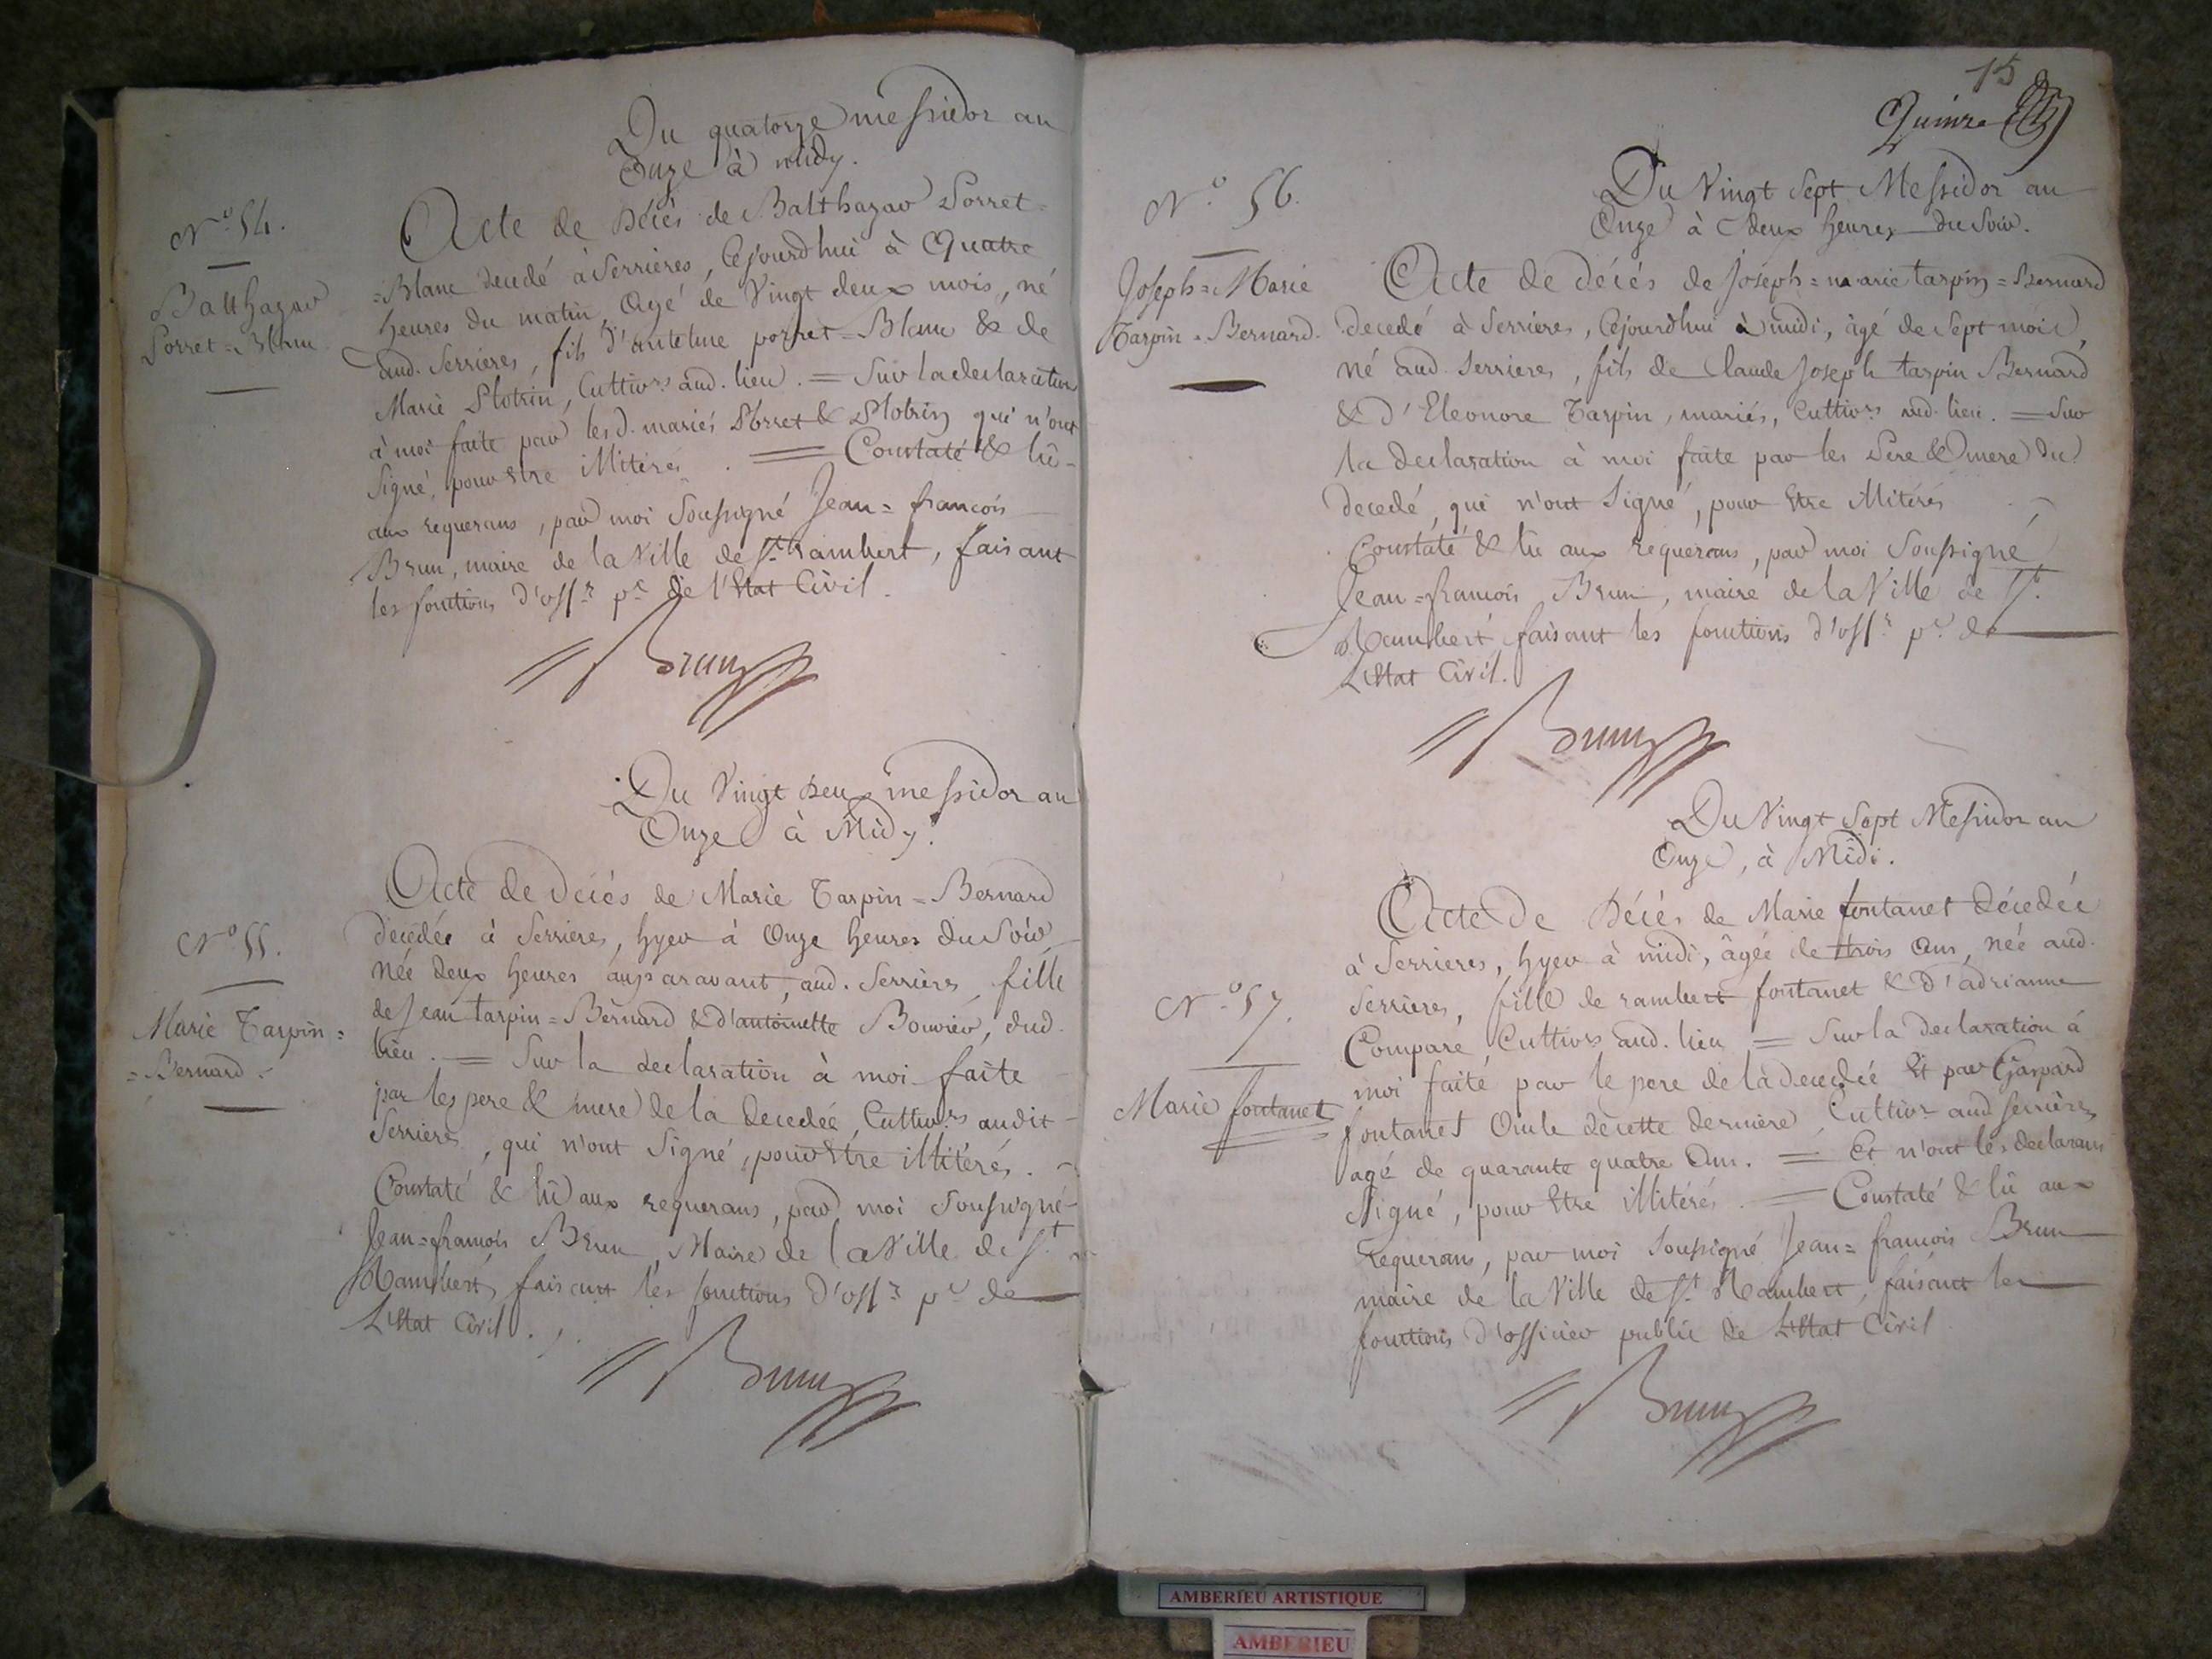 Du quatorze messidor an
Onze à midy.
N.o 54.
Balthazar
Porret=Blanc
Acte de Décès de Balthazar Porret=
=Blanc decedé à Serrieres, Cejourd'hui à Quatre
heures du matin, Agé de Vingt deux mois, né
aud. Serrieres, fils d'antelme porret=Blanc & de
Marie Plotrin, Cultivrs aud. lieu. = Sur la declaration
à moi faite par lesd. mariés Porret & Plotrin qui n'ont
Signé, pour Etre illitérés. = Constaté & lû
aux requerans, par moi Soussigné Jean=françois
Brun, maire de la Ville de St. rambert, faisant
les fonctions d'offr. pc. de l'Etat Civil.
Brun
Du Vingt Deux messidor an
Onze à Midy.
N.o 55.
Marie Tarpin=
=Bernard.
Acte de Décès de Marie Tarpin=Bernard
decedée à Serrieres, hyer à Onze heures du Soir,
née deux heures auparavant, aud. Serrieres, fille
de Jean tarpin=Bernard & d'antoinette Bouvier, dud.
lieu. = Sur la declaration à moi faite
par les pere & mere de la decedée, Cultivrs audit
Serrieres, qui n'ont Signé, pour Etre illitérés.
Constaté & lû aux requerans, par moi Soussigné
Jean=françois Brun, Maire de la Ville de St.
Rambert, faisant les fonctions d'offr. pc. de
L'Etat Civil.
Brun
15
Quinze
Du Vingt Sept Messidor an
Onze à deux heures du Soir.
N.o 56.
Joseph=Marie
Tarpin=Bernard.
Acte de décés de Joseph=marie tarpin=Bernard
decedé à Serrieres, Cejourd'hui à midi, âgé de Sept mois,
né aud. Serrieres, fils de Claude Joseph tarpin Bernard
& d'Eleonore Tarpin, mariés, Cultivrs aud. lieu. = Sur
la declaration à moi faite par les Pere & mere du
decedé, qui n'ont Signé, pour Etre illitérés
Constaté & lû aux requerans, par moi Soussigné
Jean=françois Brun, maire de la Ville de St.
Rambert, faisant les fonctions d'offr. pc. de
L'Etat Civil.
Brun
Du Vingt Sept Messidor an
Onze, à Midi.
N.o 57.
Marie fontanet
Acte De Décès de Marie fontanet décedée
à Serrieres, hyer à midi, âgée de trois Ans, née aud.
Serrieres, fille de rambert fontanet & d'adrianne
Comparé, Cultivrs aud. lieu = Sur la declaration à
moi faite par le pere de la decedée Et par Gaspard
fontanet Oncle de cette derniere, Cultivr aud Serrieres,
agé de quarante quatre Ans. = Et n'ont les declarans
Signé, pour Etre illitérés. = Constaté & lû aux
requerans, par moi Soussigné Jean=françois Brun
maire de la Ville de St. Rambert, faisant les
fonctions d'officier public de L'Etat Civil
Brun
AMBERIEU ARTISTIQUE
AMBERIEU